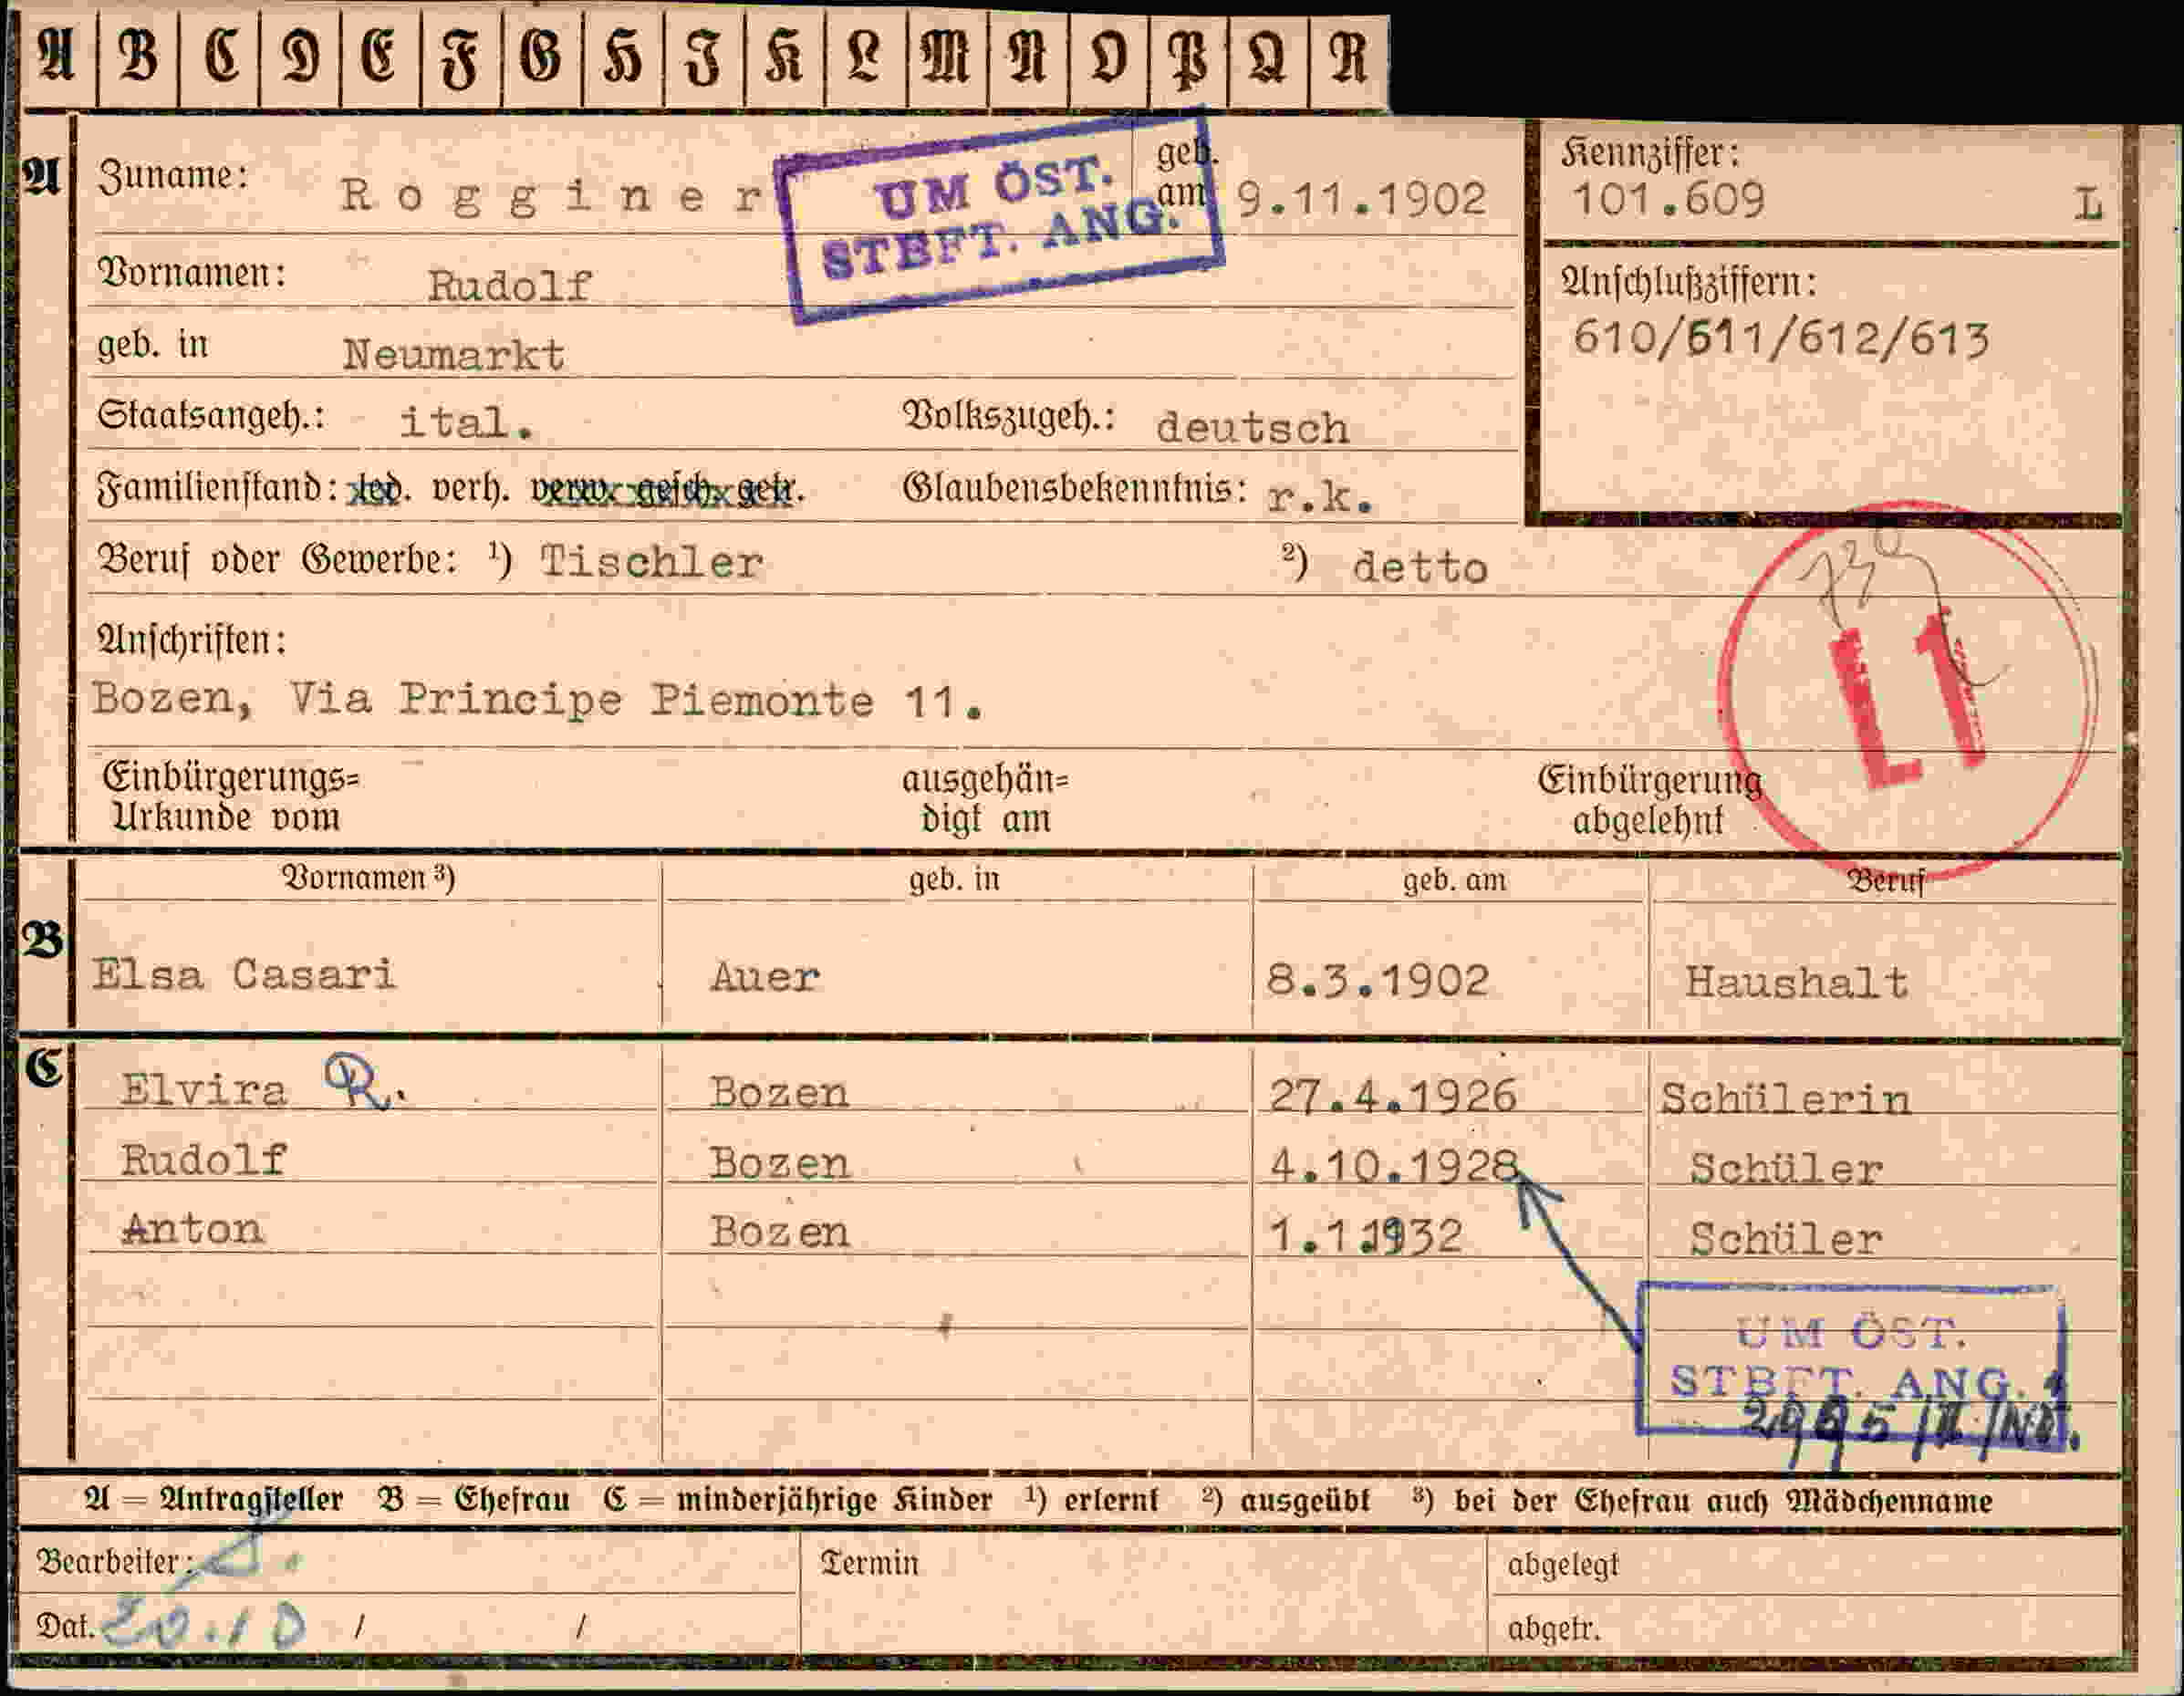 A B C D E F G H I K L M N O P Q R
A Zuname: Rogginer geb. am 9.11.1902
UM ÖST.
STBFT. ANG.
Kennziffer:
101.609 L
Vornamen: Rudolf
Anschlußziffern:
610/611/612/613
geb. in Neumarkt
Staatsangeh.: ital. Volkszugeh.: deutsch
Familienstand: led. verh. verw. gesch. getr. Glaubensbekenntnis: r.k.
Beruf oder Gewerbe: ¹) Tischler ²) detto
Anschriften:
Bozen, Via Principe Piemonte 11.
L1
Einbürgerungs=
Urkunde vom
ausgehän=
digt am
Einbürgerung
abgelehnt
Vornamen ³) geb. in geb. am Beruf
B Elsa Casari Auer 8.3.1902 Haushalt
C Elvira R. Bozen 27.4.1926 Schülerin
Rudolf Bozen 4.10.1928 Schüler
Anton Bozen 1.1.1932 Schüler
UM ÖST.
STBFT. ANG.
A = Antragsteller B = Ehefrau C = minderjährige Kinder ¹) erlernt ²) ausgeübt ³) bei der Ehefrau auch Mädchenname
Bearbeiter: Termin abgelegt
Dat. 20.10 / / abgetr.